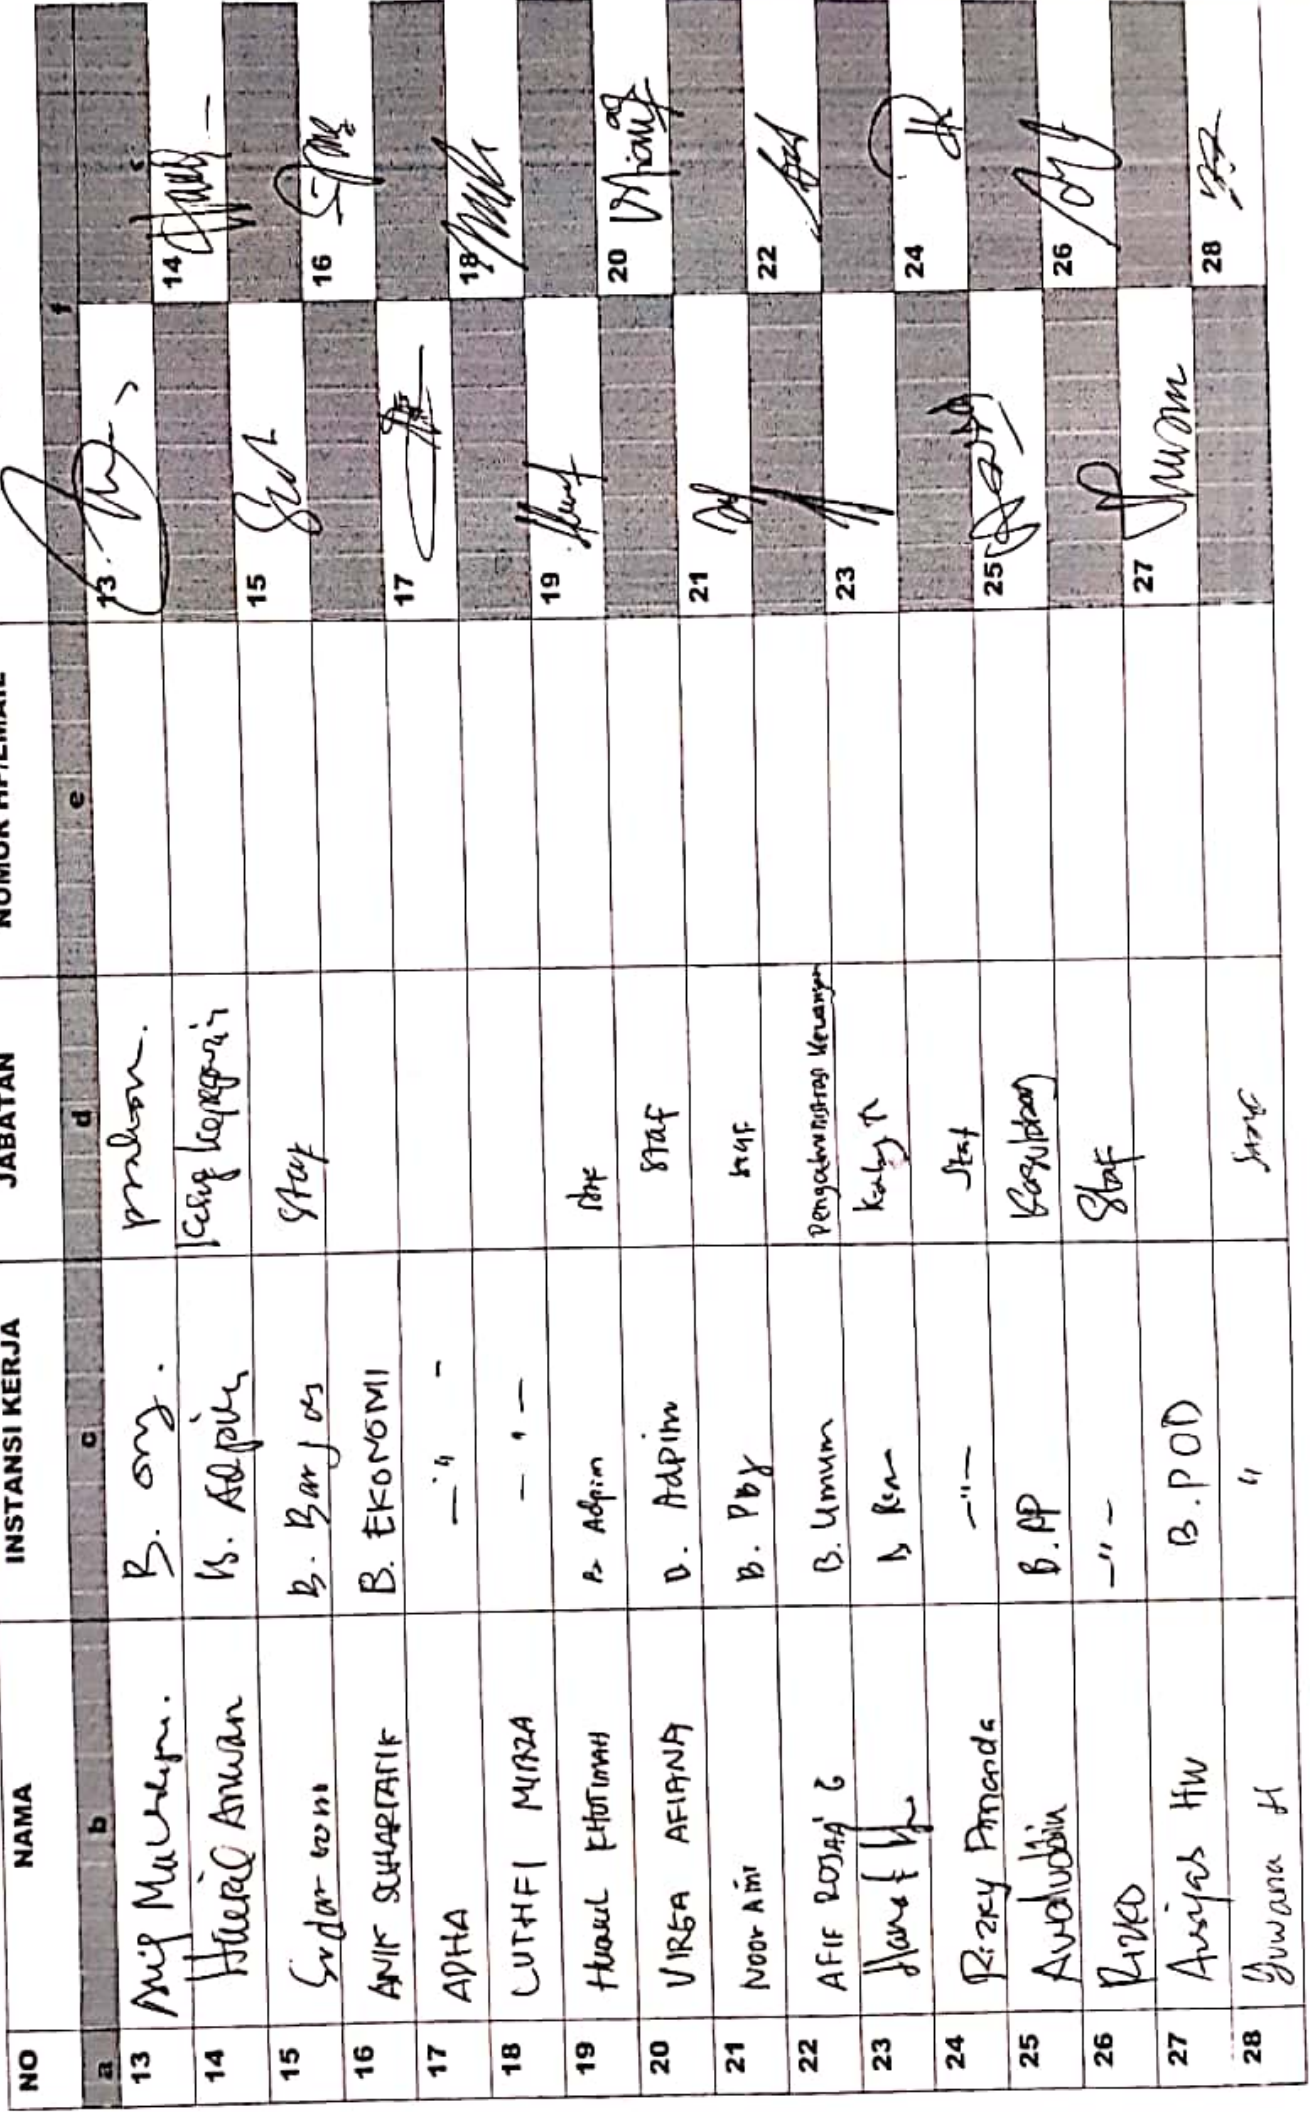 NO NAMA INSTANSI KERJA JABATAN NOMOR HP/EMAIL
a b c d e f
13 B. org. 13
14 Haeril Anwan B. Adpim 14
15 Sudarsono B. Barjas Staf 15
16 ANIK SUHARTATIK B. EKONOMI 16
17 ADHA — " — 17
18 LUTHFI MIRZA — " — 18
19 Husnul KHOTIMAH B. Adpim Staf 19
20 VIREA AFIANA B. Adpim Staf 20
21 Noor Aini B. Pbj staf 21
22 AFIF ROSAA' G B. Umum Pengadministrasi Keuangan 22
23 B Ren 23
24 Rizky Amanda —"— Staf 24
25 Awaluddin B. AP 25
26 RIZKO —"— Staf 26
27 Anisyas HW B. POD 27
28 Yuwana H " Staf 28